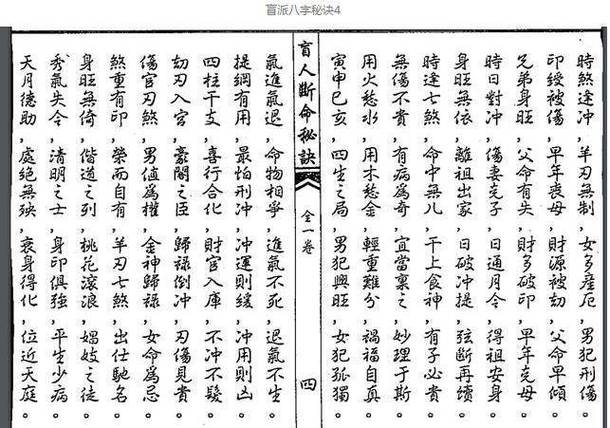 盲派八字秘诀4
時煞逢冲，羊刃無制，女多產厄，男犯刑傷。
印綬被傷，早年喪母，財源被劫，父命早傾。
兄弟身旺，父命有失，財多破印，早年克母。
時日對冲，傷妻克子，日通月令，得祖安身。
身旺無依，離祖出家，日破冲提，弦斷再續。
時逢七煞，命中無兒，干上食神，有子必貴。
無傷不貴，有病爲奇，宜當稟之，妙理于斯。
用火愁水，用木愁金，輕重難分，禍福自真。
寅申巳亥，四生之局，男犯興旺，女犯孤獨。
盲人斷命秘訣 全一卷 四
氣進氣退，命物相爭，進氣不死，退氣不生。
提綱有用，最怕刑冲，冲運則緩，冲用則凶。
四柱干支，喜行合化，財官入庫，不冲不發。
劫刃入官，豪閣之臣，歸祿倒冲，刃傷見貴。
傷官刃煞，男值爲權，金神歸祿，女命爲忌。
煞重有印，榮而自有，羊刃七煞，出仕馳名。
身旺無倚，偕道之列，桃花滾浪，娼妓之徒。
秀氣失令，清明之士，身印俱強，平生少病。
天月德助，處絕無殃，衰身得化，位近天庭。